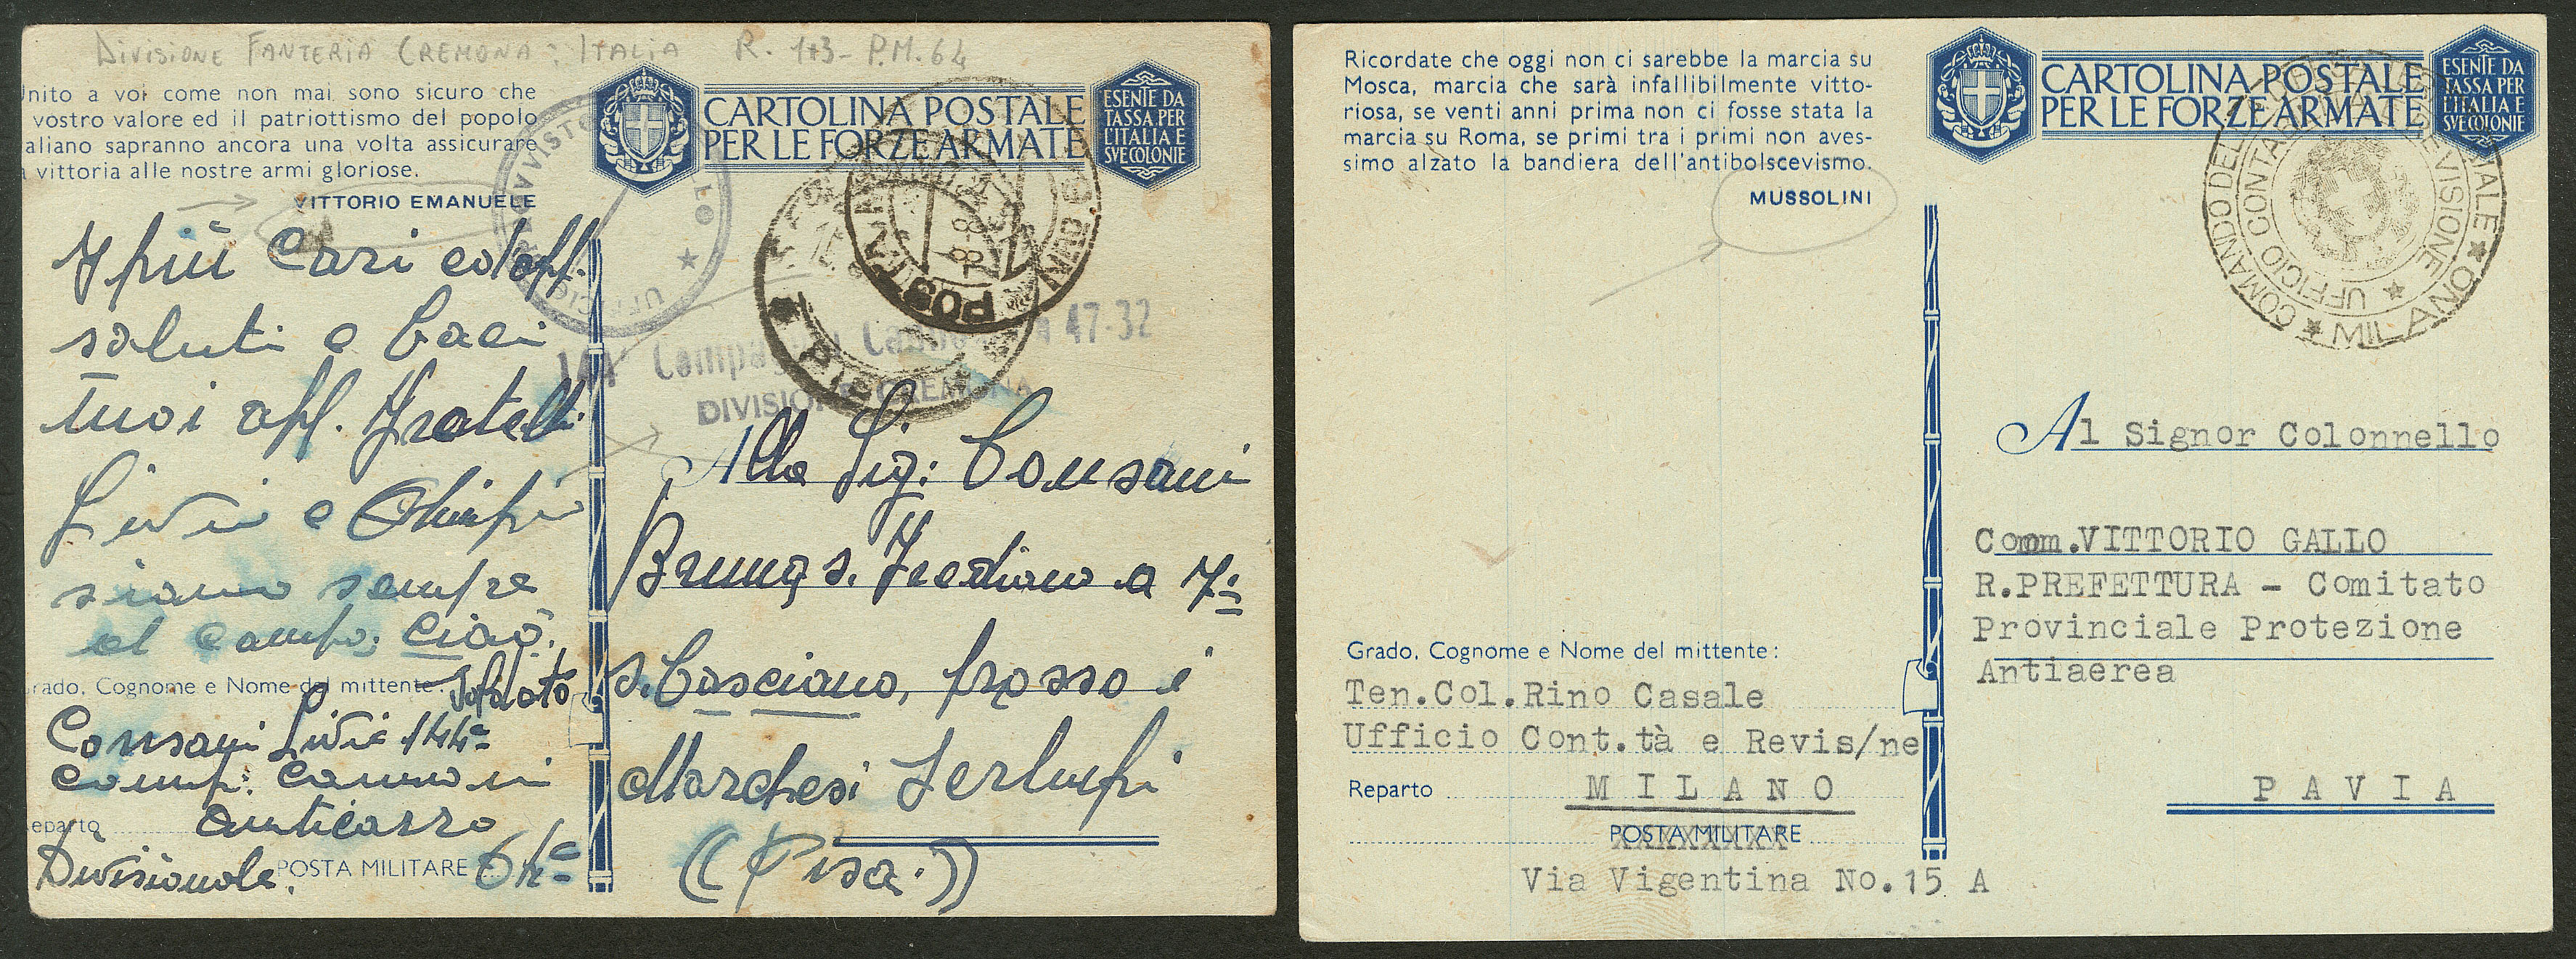 DIVISIONE FANTERIA CREMONA: ITALIA R. 1+3 - P.M. 64
Unito a voi come non mai sono sicuro che
vostro valore ed il patriottismo del popolo
aliano sapranno ancora una volta assicurare
vittoria alle nostre armi gloriose.
VITTORIO EMANUELE
CARTOLINA POSTALE
PER LE FORZE ARMATE
ESENTE DA
TASSA PER
L'ITALIA E
SVE COLONIE
UFFICIO
POS
47-32
DIVISIONE CREMONA
I più Cari ed aff.
saluti e baci
tuoi aff. Fratelli
Livio e
siamo sempre
al campo. Ciao.
Grado, Cognome e Nome del mittente: Soldato
Consani Livio 144ª
comp: cannoni
Reparto anticarro
Divisionale. POSTA MILITARE 64ª
Alla Sig: Consani
Bruna s. Frediano a 7:
S. Casciano, presso i
Marchesi Serlupi
(Pisa.)
Ricordate che oggi non ci sarebbe la marcia su
Mosca, marcia che sarà infallibilmente vitto-
riosa, se venti anni prima non ci fosse stata la
marcia su Roma, se primi tra i primi non aves-
simo alzato la bandiera dell'antibolscevismo.
MUSSOLINI
CARTOLINA POSTALE
PER LE FORZE ARMATE
ESENTE DA
TASSA PER
L'ITALIA E
SVE COLONIE
COMANDO DEL
★ MILANO ★
UFFICIO CONTABILITA E REVISIONE ★
Al Signor Colonnello
Comm.VITTORIO GALLO
R.PREFETTURA - Comitato
Provinciale Protezione
Antiaerea
PAVIA
Grado, Cognome e Nome del mittente:
Ten.Col.Rino Casale
Ufficio Cont.tà e Revis/ne
Reparto MILANO
POSTA MILITARE
Via Vigentina No.15 A